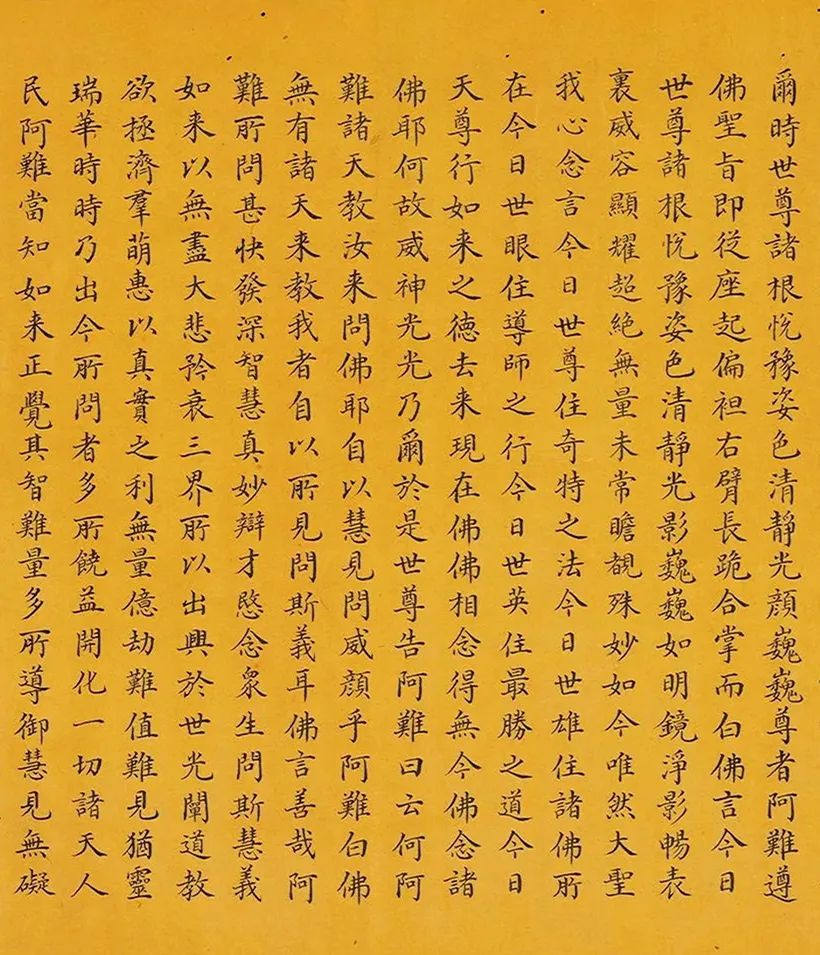 爾時世尊諸根悅豫姿色清靜光顏巍巍尊者阿難遵
佛聖旨即從座起偏袒右臂長跪合掌而白佛言今日
世尊諸根悅豫姿色清靜光影巍巍如明鏡淨影暢表
裏威容顯耀超絕無量未常瞻覩殊妙如今唯然大聖
我心念言今日世尊住奇特之法今日世雄住諸佛所
在今日世眼住導師之行今日世英住最勝之道今日
天尊行如来之德去来現在佛佛相念得無今佛念諸
佛耶何故威神光光乃爾於是世尊告阿難曰云何阿
難諸天教汝来問佛耶自以慧見問威顏乎阿難白佛
無有諸天来教我者自以所見問斯義耳佛言善哉阿
難所問甚快發深智慧真妙辯才愍念衆生問斯慧義
如来以無盡大悲矜哀三界所以出興於世光闡道教
欲極濟羣萌惠以真實之利無量億劫難值難見猶靈
瑞華時時乃出今所問者多所饒益開化一切諸天人
民阿難當知如来正覺其智難量多所導御慧見無礙